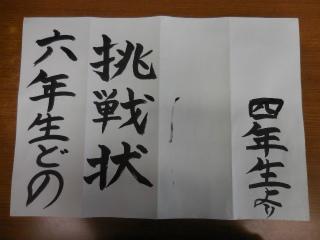 四年生より
挑戦状
六年生どの